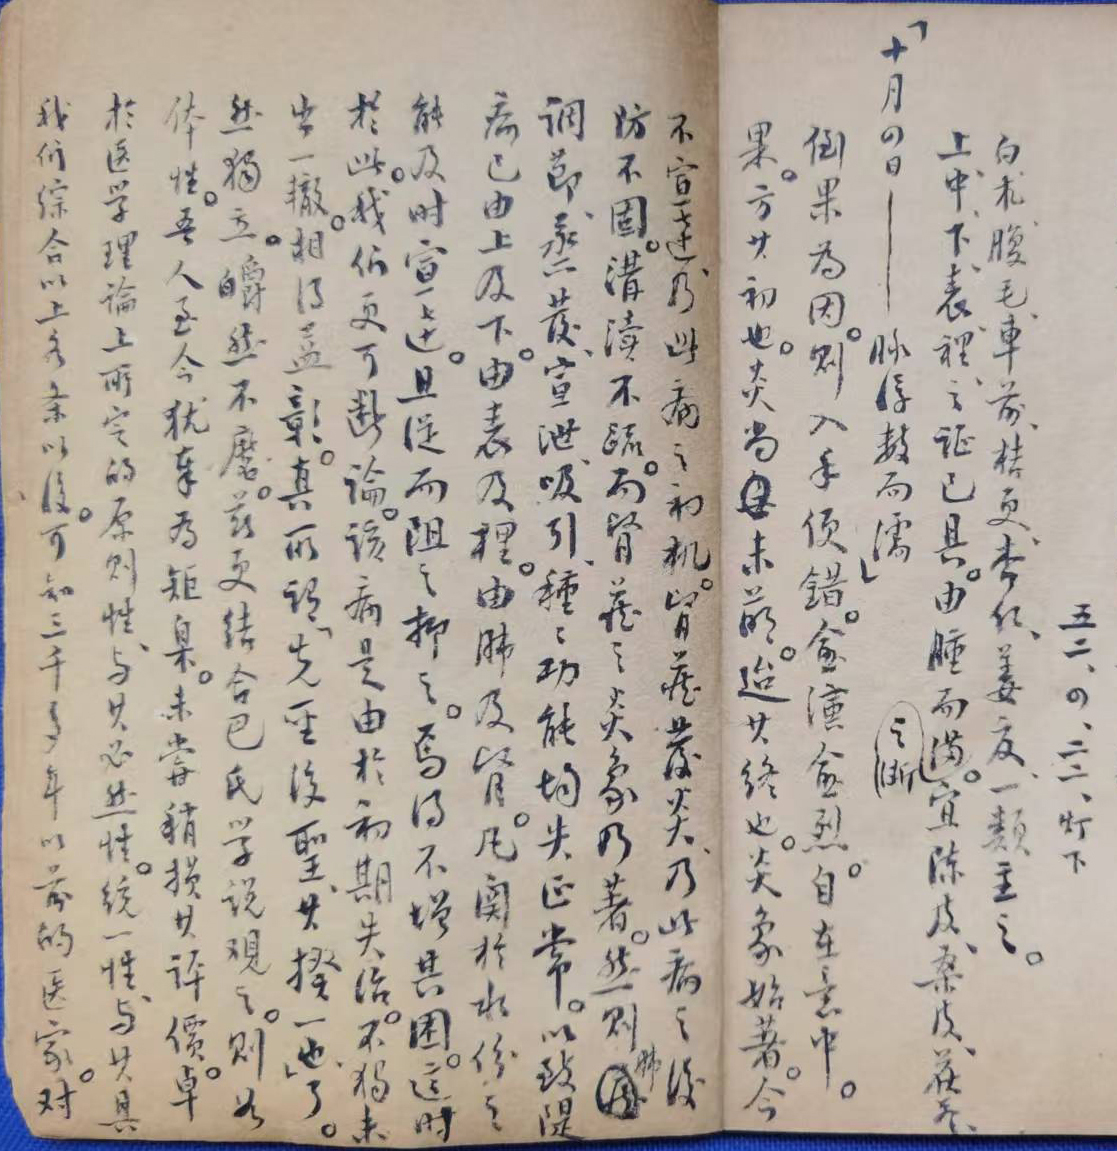 五二、四、二二、灯下
白朮、腹毛、車前、桔更、杏仁、姜皮、一類主之。
上、中、下、表、裡、之証已具。由腫而满。宜陈皮、桑皮、茯苓、
「十月四日——脉浮数而濡」之断
倒果為因。则入手便錯。愈演愈烈。自在意中。
果。方其初也。炎尚未萌。迨其終也。炎象始著。今
不宣達、乃此病之初机。腎臟發炎、乃此病之後
防不固。溝瀆不疏。而腎臟之炎象乃著。然则肺
調節、蒸發、宣泄、吸引、種之功能均失正常。以致隄
病已由上及下。由表及裡。由肺及腎。凡関於水份之
能及时宣達。且從而阻之抑之。焉得不增其困。這时
於此。我们更可断論。該病是由於初期失治。不獨未
出一轍。相得益彰。真所謂「先圣後聖、其揆一也」了。
然獨立。皭然不磨。茲更结合巴氏学说观之。则如
体性。吾人至今犹奉為矩臬。未嘗稍損其評價。卓
於医学理論上所定的原则性、与其必然性。統一性、与其具
我们综合以上各条以後。可知三千多年以前的医家。对